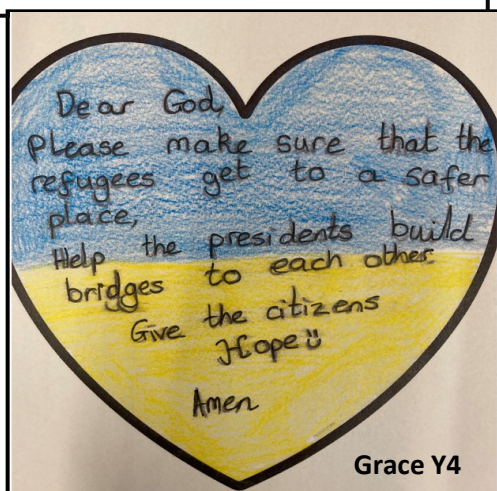 Dear God,
please make sure that the
refugees get to a safer
place,
Help the presidents build
bridges to each other.
Give the citizens
Hope
Amen
Grace Y4